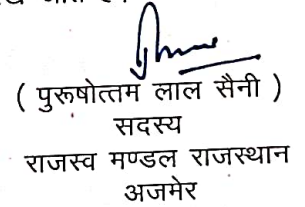 ( पुरूषोत्तम लाल सैनी )
सदस्य
राजस्व मण्डल राजस्थान
अजमेर